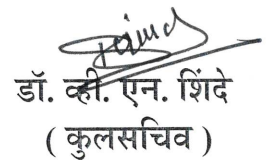 डॉ. व्ही. एन. शिंदे
( कुलसचिव )